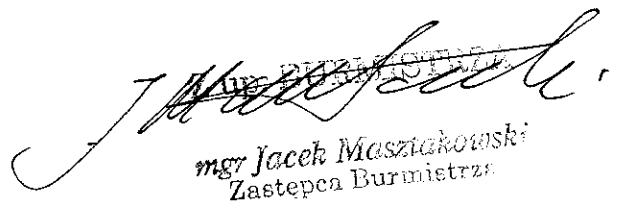 z up. BURMISTRZA
mgr Jacek Masztakowski
Zastępca Burmistrza